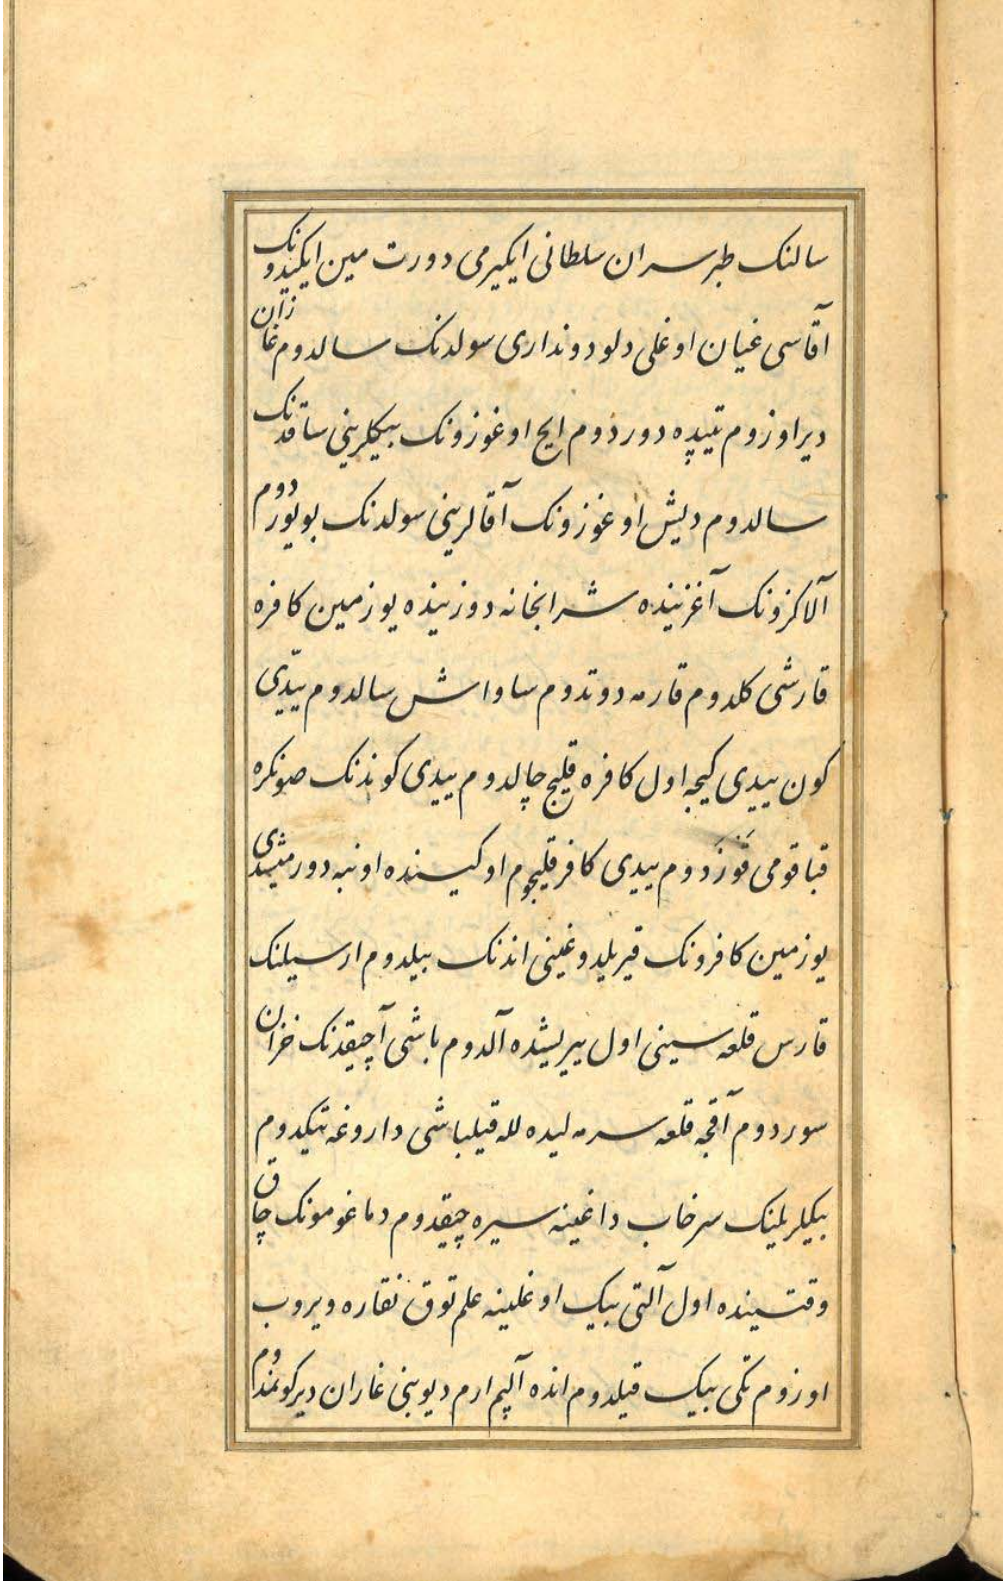 سالنک طبرسران سلطانی ایکیرمی دورت مین ایکیدونک
آقاسی غیان اوغلی دلو دونداری سولدنک سالدوم غازان
دیر اوزوم تیپده دوردوم ایچ اوغوزونک بیکلرینی ساقدنک
سالدوم دیش اوغوزونک آقالرینی سولدنک بویوردوم
آلاکزونک آغزینده شرابخانه دوزینده یوز مین کافره
قارشی کلدوم قارمه دوتدوم ساواش سالدوم ییدّی
کون ییدی کیجه اول کافره قلیج چالدوم ییدی کوندنک صونکره
قباقومی قوزدوم ییدی کافر قلیجوم اوکینده اونبه دورمیشدی
یوز مین کافرونک قیریلدوغینی اندنک بیلدوم ارسیلنک
قارس قلعه سینی اول ییریشده آلدوم باشی آچیقدنک خزان
سوردوم آقجه قلعه سرمه لیده لله قیلباشی داروغه تیکدوم
بیکیلر بیلینک سرخاب داغینه سیره چیقدوم دماغومونک چاق
وقتینده اول آلتی بیک اوغلینه علم توق نقاره ویروب
اوزوم تکی بیک قیلدوم انده آلپم ارم دیوبنی غازان دیر کونمدوم